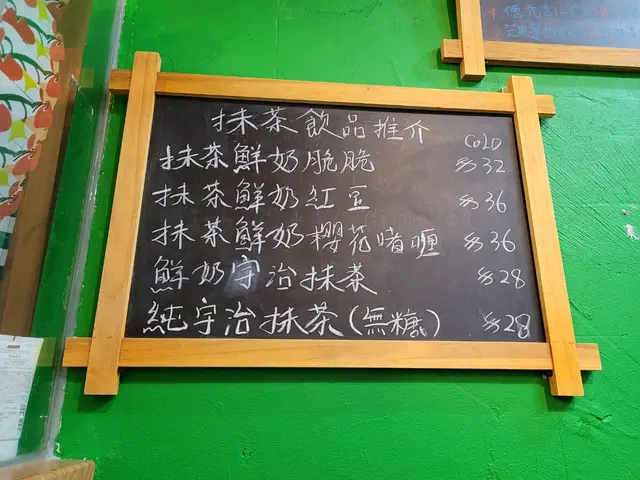 抹茶飲品推介
COLD
抹茶鮮奶脆脆 $32
抹茶鮮奶紅豆 $36
抹茶鮮奶櫻花啫喱 $36
鮮奶宇治抹茶 $28
純宇治抹茶(無糖) $28